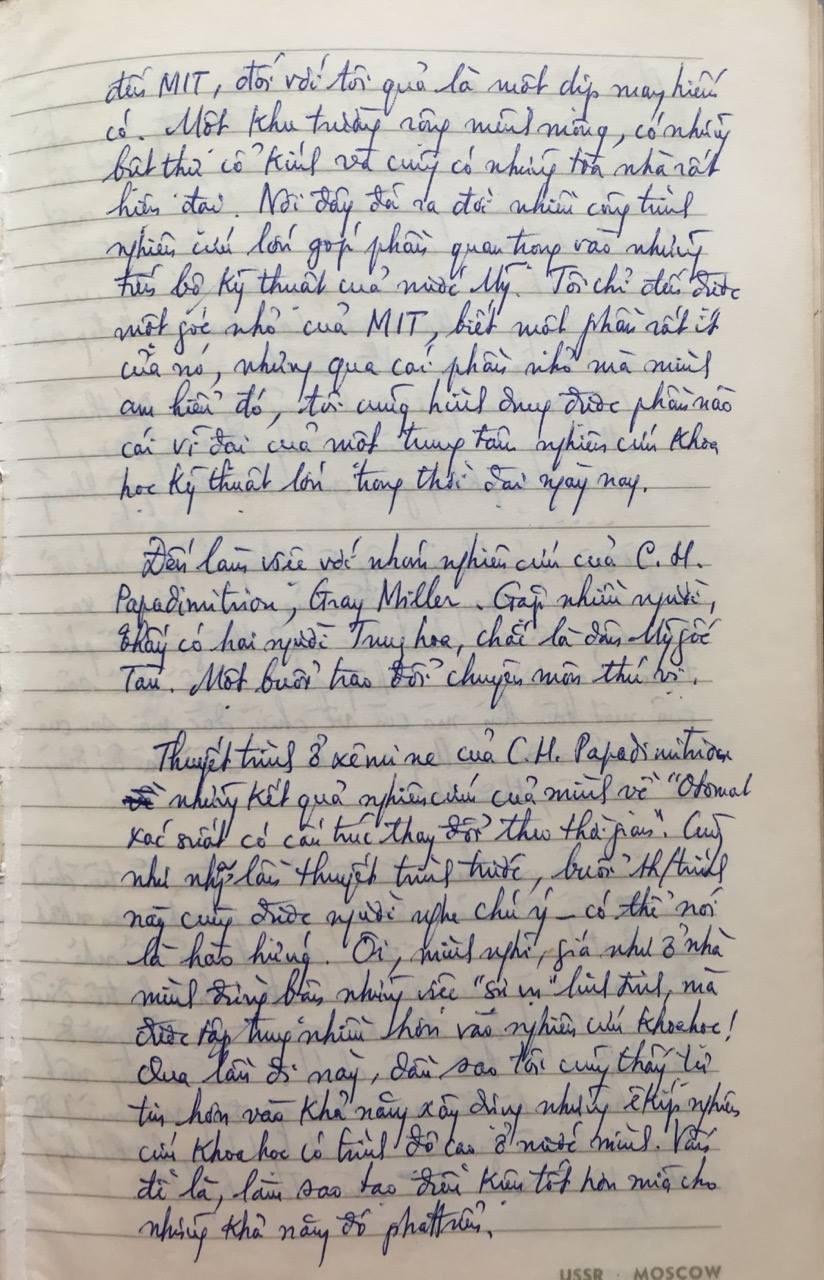 đến MIT, đối với tôi quả là một dịp may hiếm
có. Một khu trường rộng mênh mông, có những
bức thứ cổ kính và cũng có những tòa nhà rất
hiện đại. Nơi đây đã ra đời nhiều công trình
nghiên cứu lớn góp phần quan trọng vào những
tiến bộ kỹ thuật của nước Mỹ. Tôi chỉ đến được
một góc nhỏ của MIT, biết một phần rất ít
của nó, nhưng qua cái phần nhỏ mà mình
am hiểu đó, tôi cũng hình dung được phần nào
cái vĩ đại của một trung tâm nghiên cứu khoa
học kỹ thuật lớn trong thời đại ngày nay.
Đến làm việc với nhóm nghiên cứu của C.H.
Papadimitriou, Gray Miller. Gặp nhiều người,
thấy có hai người Trung hoa, chắc là dân Mỹ gốc
Tàu. Một buổi trao đổi chuyên môn thú vị.
Thuyết trình ở xêmine của C.H. Papadimitriou
những kết quả nghiên cứu của mình về "Otomat
xác suất có cấu trúc thay đổi theo thời gian". Cũng
như những lần thuyết trình trước, buổi th/trình
này cũng được người nghe chú ý - có thể nói
là hào hứng. Ôi, mình nghĩ, giá như ở nhà
mình đừng bận những việc "sự vụ" linh tinh, mà
được tập trung nhiều hơn vào nghiên cứu khoa học!
Qua lần đi này, dẫu sao tôi cũng thấy tự
tin hơn vào khả năng xây dựng những êkíp nghiên
cứu khoa học có trình độ cao ở nước mình. Vấn
đề là, làm sao tạo điều kiện tốt hơn nữa cho
những khả năng đó phát triển.
USSR · MOSCOW